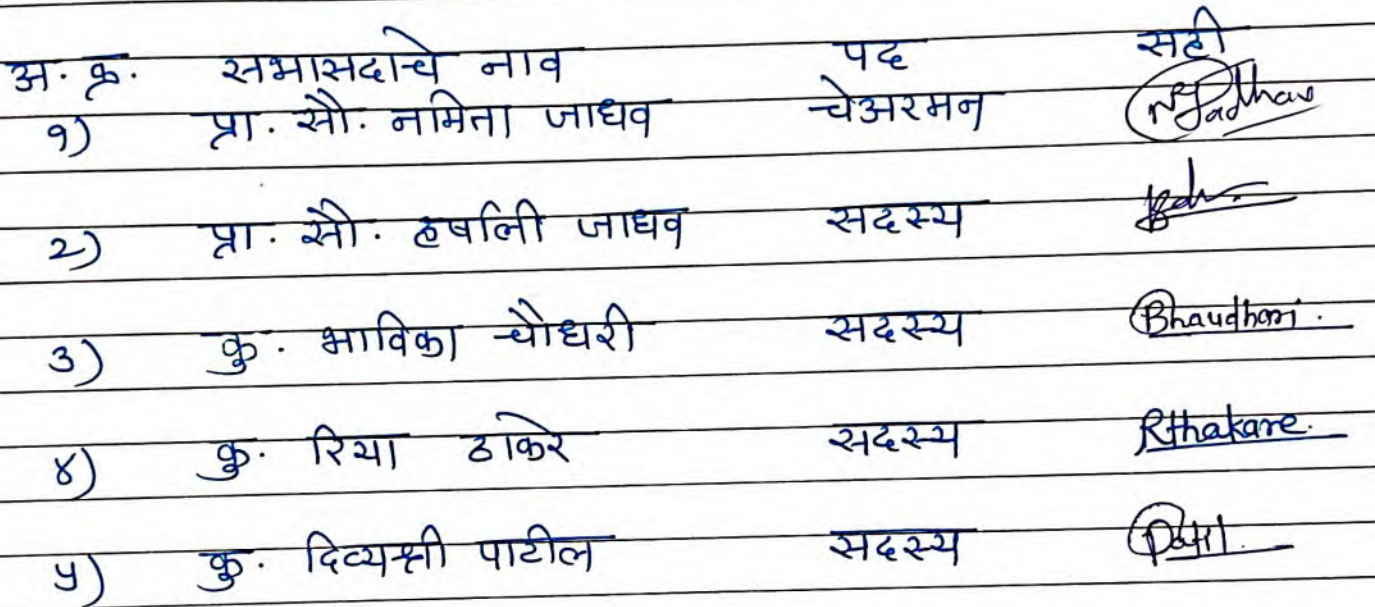 अ. क्र. सभासदाचे नाव पद सही
१) प्रा. सौ. नमिता जाधव चेअरमन Jadhav
२) प्रा. सौ. हर्षाली जाधव सदस्य
३) कु. भाविका चौधरी सदस्य Bhaudhari.
४) कु. रिया ठाकरे सदस्य Rthakare.
५) कु. दिव्यश्री पाटील सदस्य Patil.